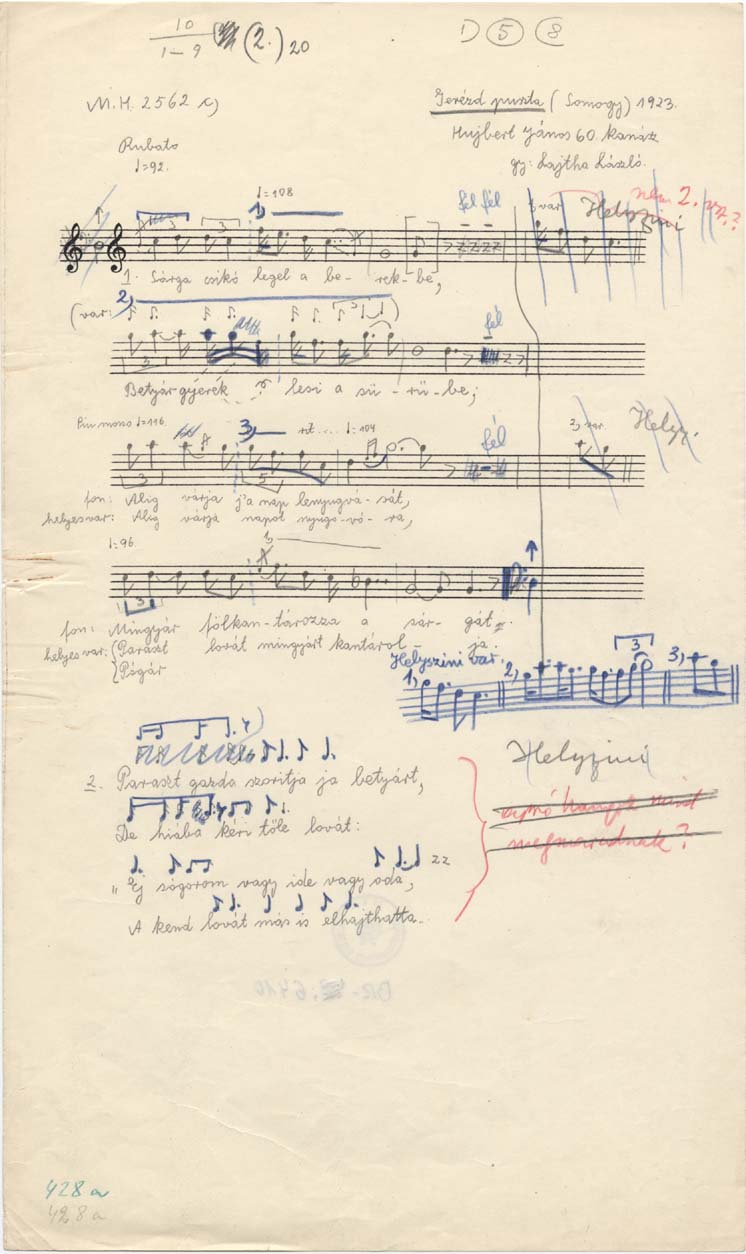 10
1-9 (2.) 20
1) 5 8
M.H. 2562 c)
Jerézd puszta (Somogy) 1923.
Hujbert János 60. kanász
gy: Lajtha László.
Rubato
♩=92.
♩=108
1)
fél fél
var.
Helyzini
nem 2.
3 3
1. Sárga csikó legel a be- rek- be,
2)
(var: )
3
fél
3
Betyár-gyerek ? lesi a sü - rü - be;
Piu mosso ♩=116.
3)
rit.... ♩=104
fél
3) var.
Helyz.
3 5
fon: Alig várja j'a nap lenyugvá- sát,
helyesvar: Alig várja napot nyugo-vó- ra,
♩=96.
3
fon: Mingyár fölkan-tározza a sár- gát.
helyesvar: {Paraszt lovát mingyárt kantárol - ja.
{Pógár
Helyszini var.
1) 2) 3 3)
Helyzini
2. Paraszt gazda szoritja ja betyárt,
hangok mind
megmaradnak?
De hiába kéri tőle lovát:
„Ej sógorom vagy ide vagy oda,
A kend lovát más is elhajthatta.
428 a
428 a